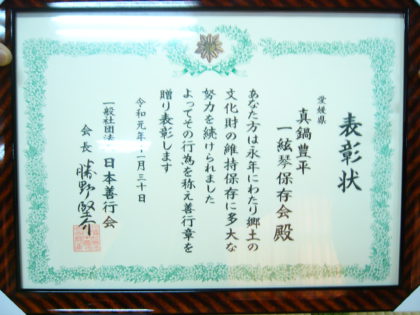 表彰状
愛媛県
真鍋豊平
一絃琴保存会殿
あなた方は永年にわたり郷土の
文化財の維持保存に多大な
努力を続けられました
よってその行為を称え善行章を
贈り表彰します
令和元年十一月三十日
一般社団法人日本善行会
会長 勝野堅介